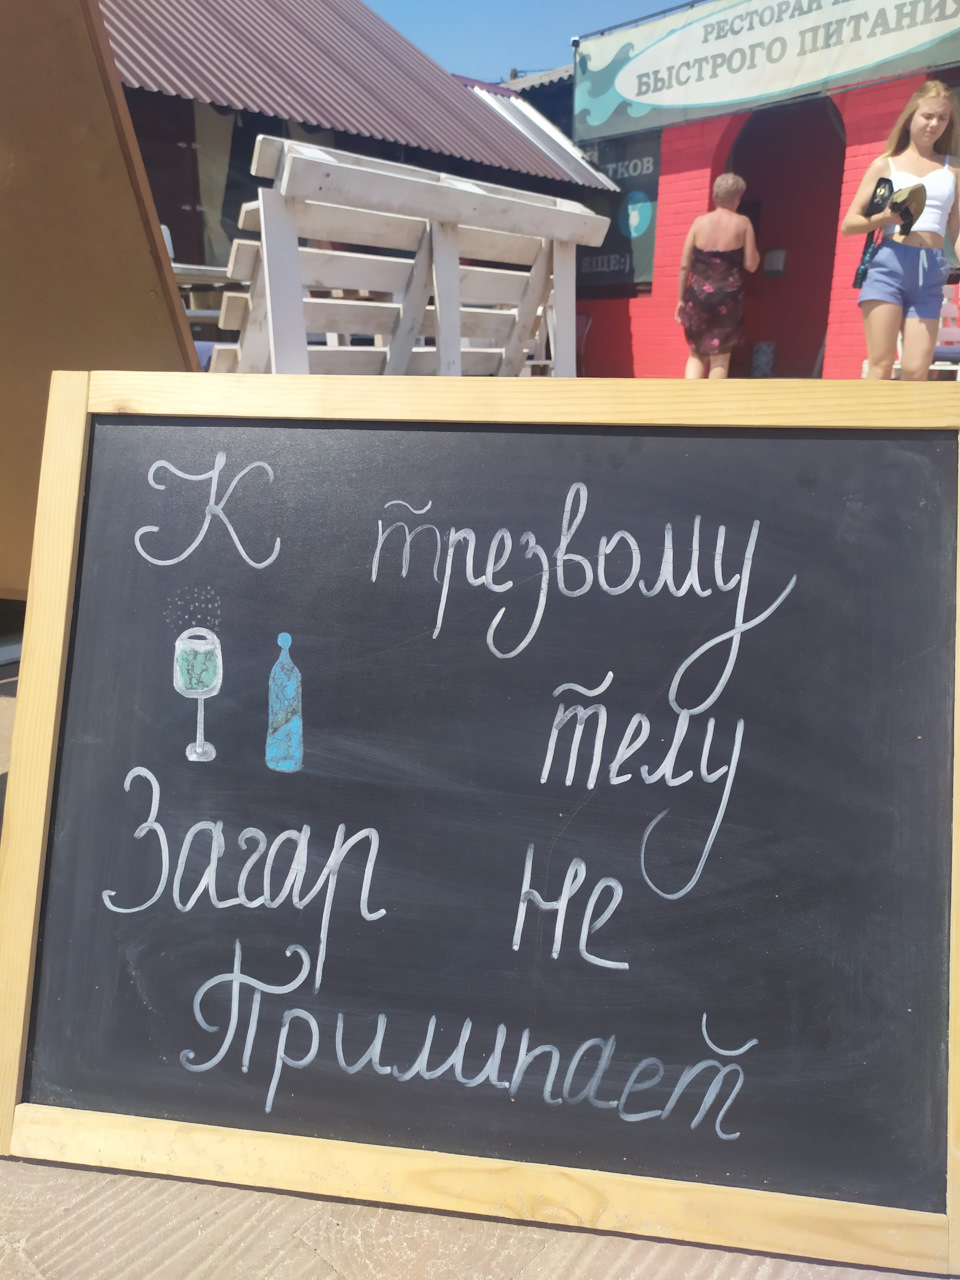 РЕСТОРАН
БЫСТРОГО ПИТАНИЯ
ТКОВ
ЕЩЕ:)
К трезвому
телу
Загар не
Прилипает